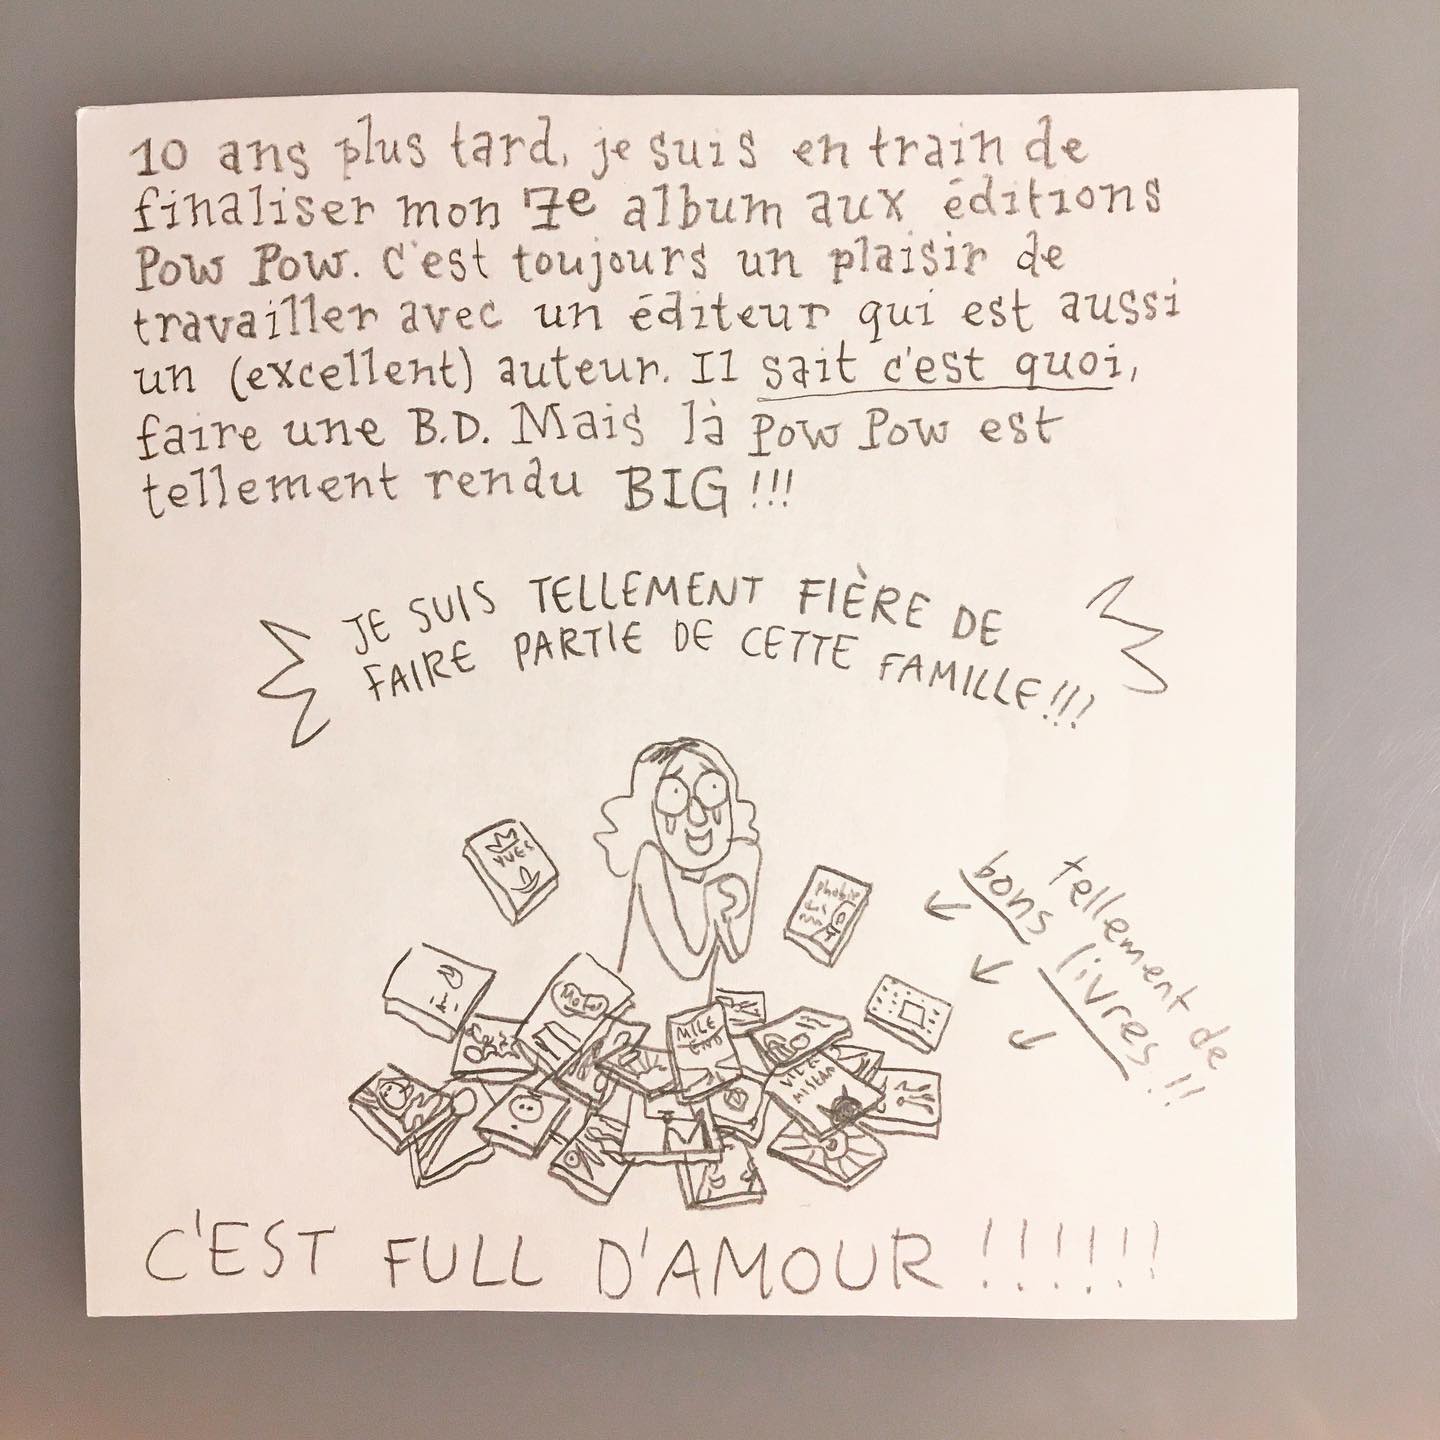 10 ans plus tard, je suis en train de
finaliser mon 7e album aux éditions
Pow Pow. C'est toujours un plaisir de
travailler avec un éditeur qui est aussi
un (excellent) auteur. Il sait c'est quoi,
faire une B.D. Mais là Pow Pow est
tellement rendu BIG !!!
JE SUIS TELLEMENT FIÈRE DE
FAIRE PARTIE DE CETTE FAMILLE!!!
YVES
phobie
des
tellement de
bons livres!!
MILE
END
C'EST FULL D'AMOUR !!!!!!